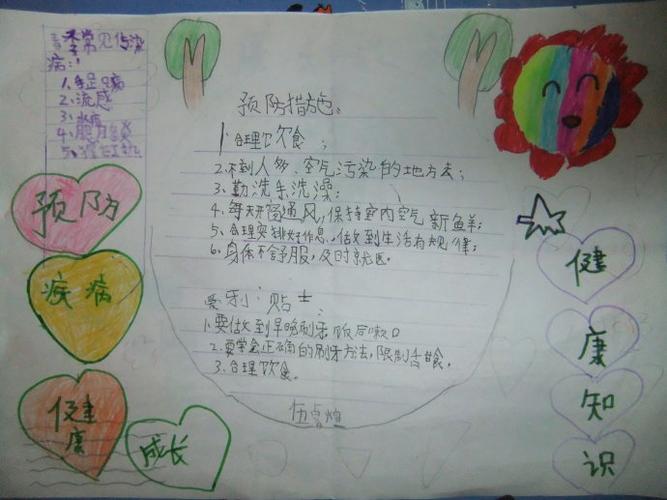 春季常见传染
病：
1、手足口病
2、流感
3、水痘
4、腮腺炎
5、猩红热
预防
疾病
健康
成长
预防措施：
1、合理饮食；
2.不到人多、空气污染的地方去；
3、勤洗手洗澡；
4、每天开窗通风，保持室内空气新鲜；
5、合理安排好作息，做到生活有规律；
6、身体不舒服，及时就医。
爱牙小贴士：
1、要做到早晚刷牙，饭后嗽口
2.要学会正确的刷牙方法，限制舌食。
3.合理饮食。
健
康
知
识